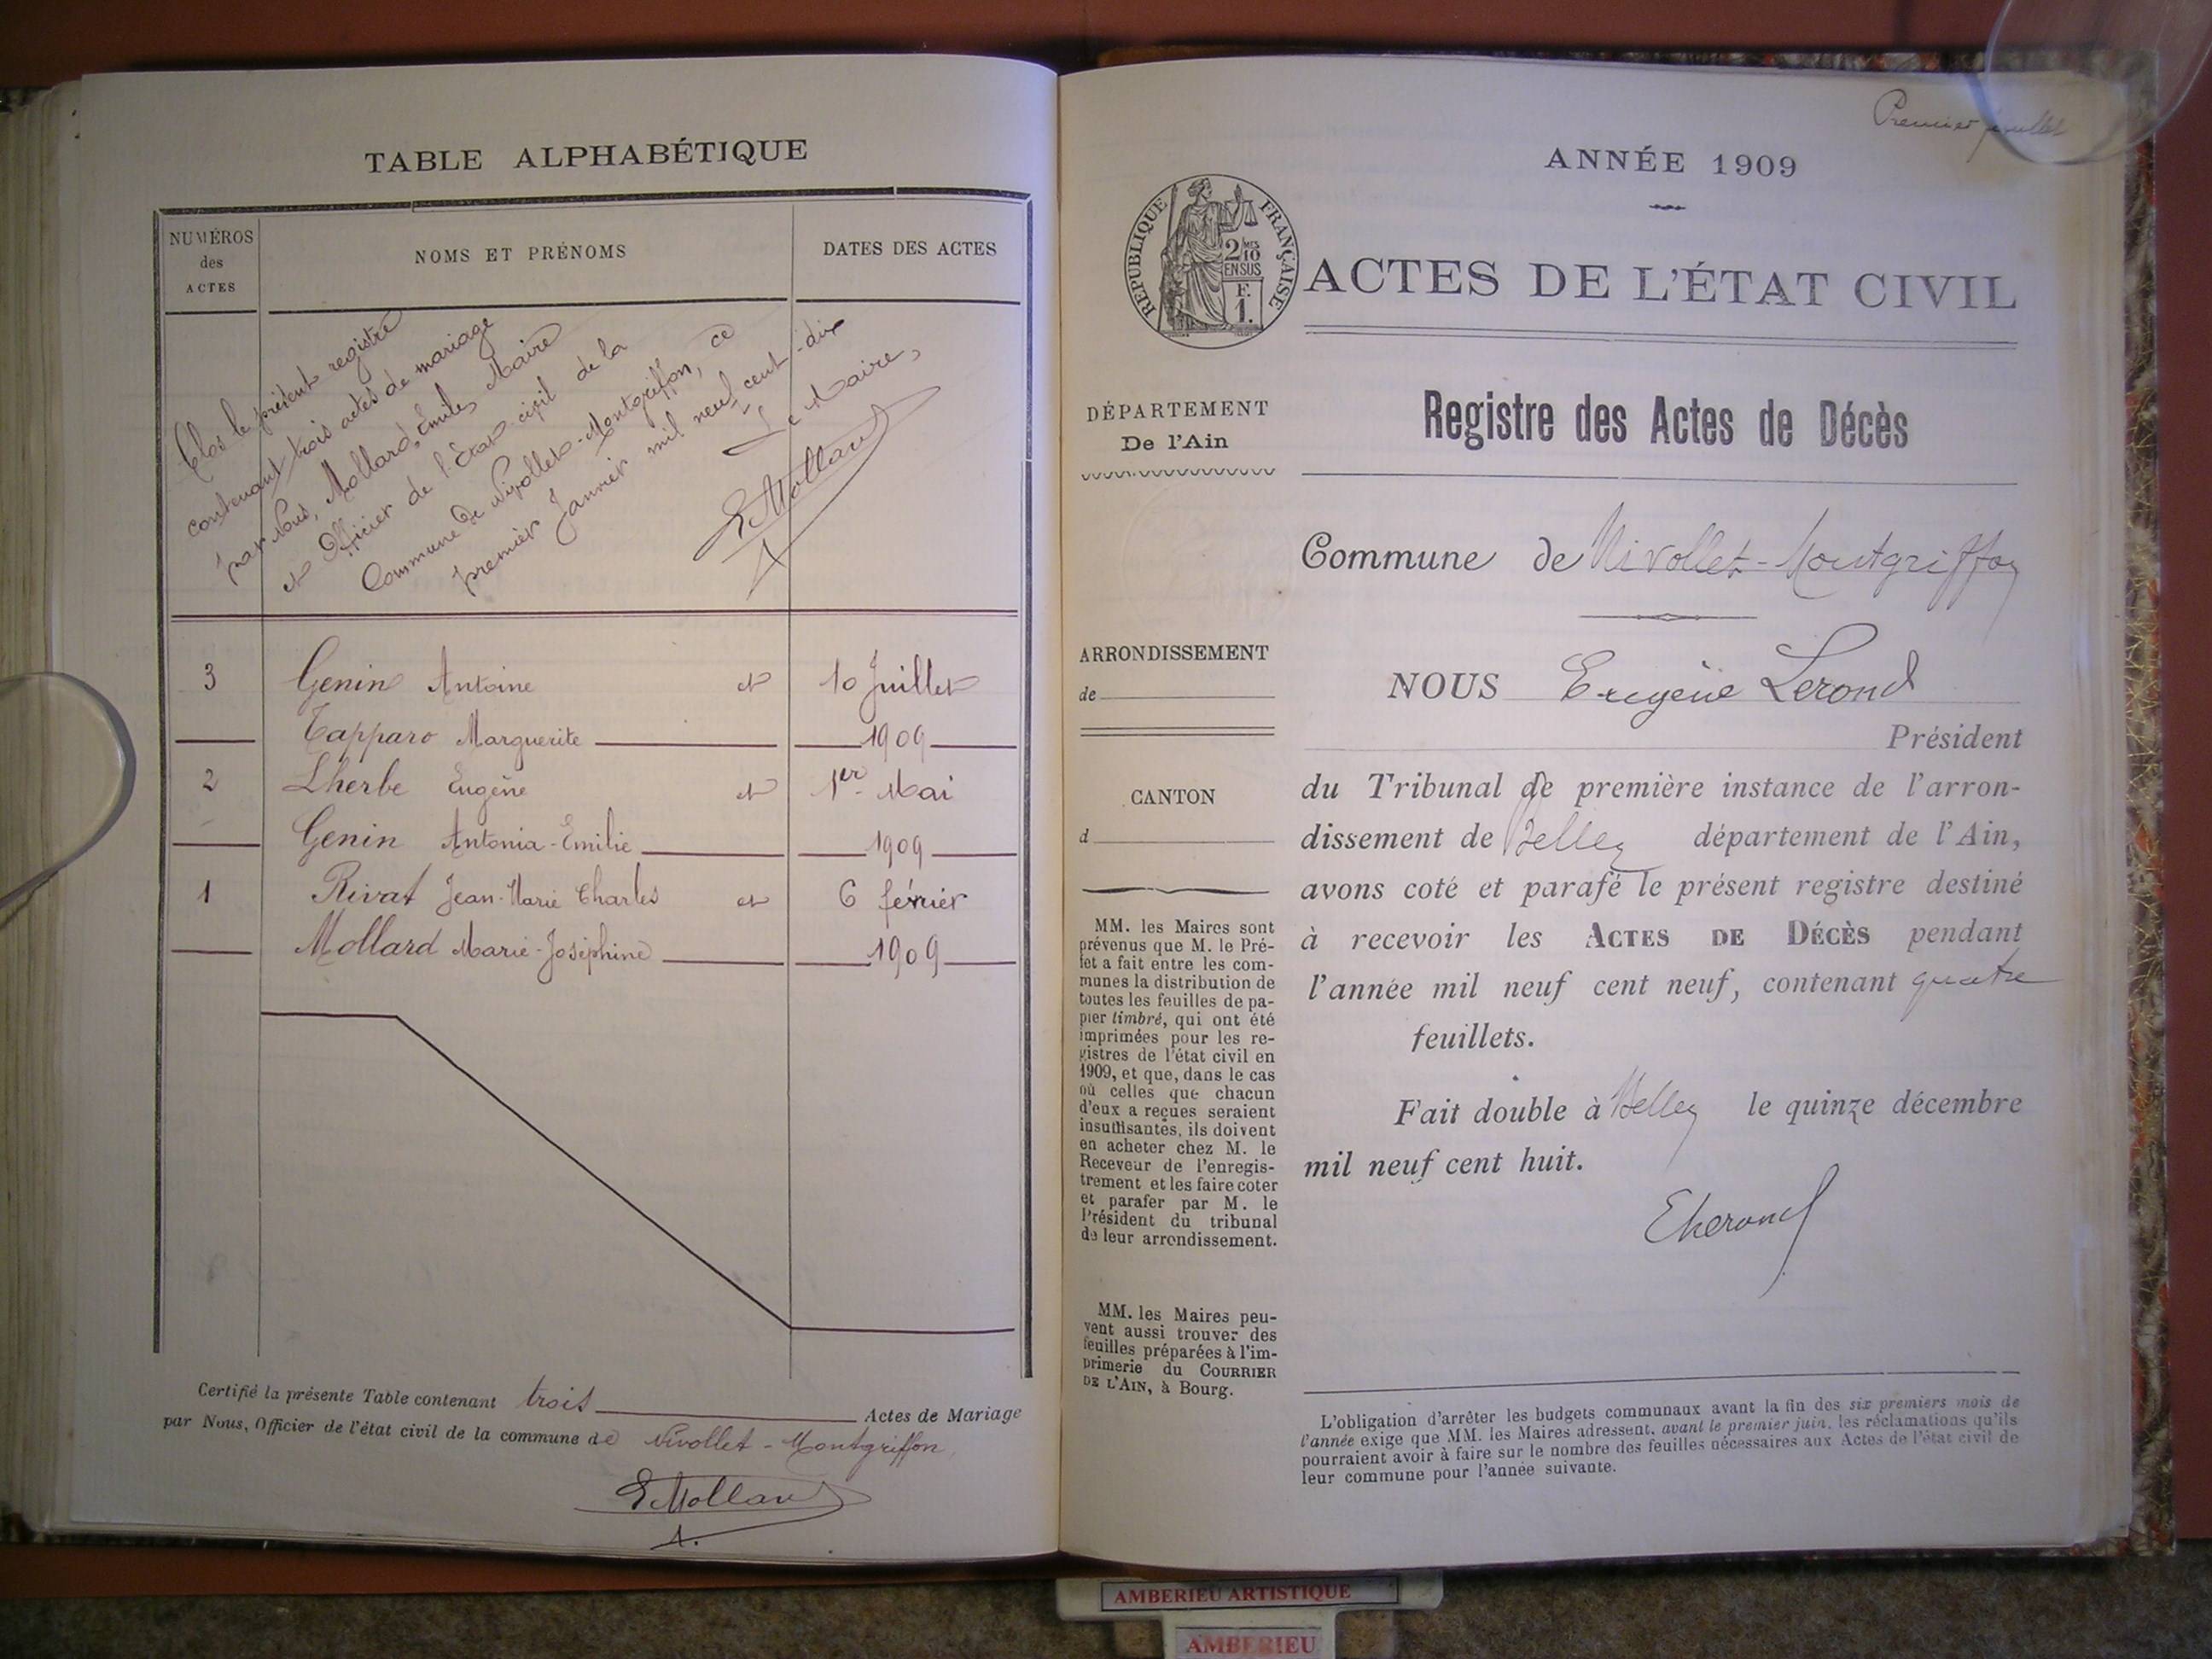 TABLE ALPHABÉTIQUE
NUMÉROS
des
ACTES
NOMS ET PRÉNOMS
DATES DES ACTES
Clos le présent registre
contenant trois actes de mariage
par Nous, Mollard, Emile, Maire
et Officier de l'État-civil de la
Commune de Nivollet-Montgriffon, ce
premier Janvier mil neuf cent-dix
Le Maire,
E Mollard
3 Genin Antoine et 10 Juillet
Tapparo Marguerite 1909
2 Lherbe Eugène et 1er Mai
Genin Antonia-Emilie 1909
1 Rivat Jean-Marie Charles et 6 février
Mollard Marie-Joséphine 1909
Certifié la présente Table contenant trois Actes de Mariage
par Nous, Officier de l'état civil de la commune de Nivollet-Montgriffon,
E Mollard
Premier feuillet
ANNÉE 1909
RÉPUBLIQUE FRANÇAISE
2/10 MES
EN SUS
F.
1.
ACTES DE L'ÉTAT CIVIL
DÉPARTEMENT
De l'Ain
Registre des Actes de Décès
Commune de Nivollet-Montgriffon
ARRONDISSEMENT
de
CANTON
d
NOUS Eugène Lerond
Président
du Tribunal de première instance de l'arron-
dissement de Belley département de l'Ain,
avons coté et parafé le présent registre destiné
à recevoir les ACTES DE DÉCÈS pendant
l'année mil neuf cent neuf, contenant quatre
feuillets.
Fait double à Belley le quinze décembre
mil neuf cent huit.
ELerond
MM. les Maires sont
prévenus que M. le Pré-
fet a fait entre les com-
munes la distribution de
toutes les feuilles de pa-
pier timbré, qui ont été
imprimées pour les re-
gistres de l'état civil en
1909, et que, dans le cas
où celles que chacun
d'eux a reçues seraient
insuffisantes, ils doivent
en acheter chez M. le
Receveur de l'enregis-
trement et les faire coter
et parafer par M. le
Président du tribunal
de leur arrondissement.
MM. les Maires peu-
vent aussi trouver des
feuilles préparées à l'im-
primerie du COURRIER
DE L'AIN, à Bourg.
L'obligation d'arrêter les budgets communaux avant la fin des six premiers mois de
l'année exige que MM. les Maires adressent, avant le premier juin, les réclamations qu'ils
pourraient avoir à faire sur le nombre des feuilles nécessaires aux Actes de l'état civil de
leur commune pour l'année suivante.
AMBERIEU ARTISTIQUE
AMBERIEU